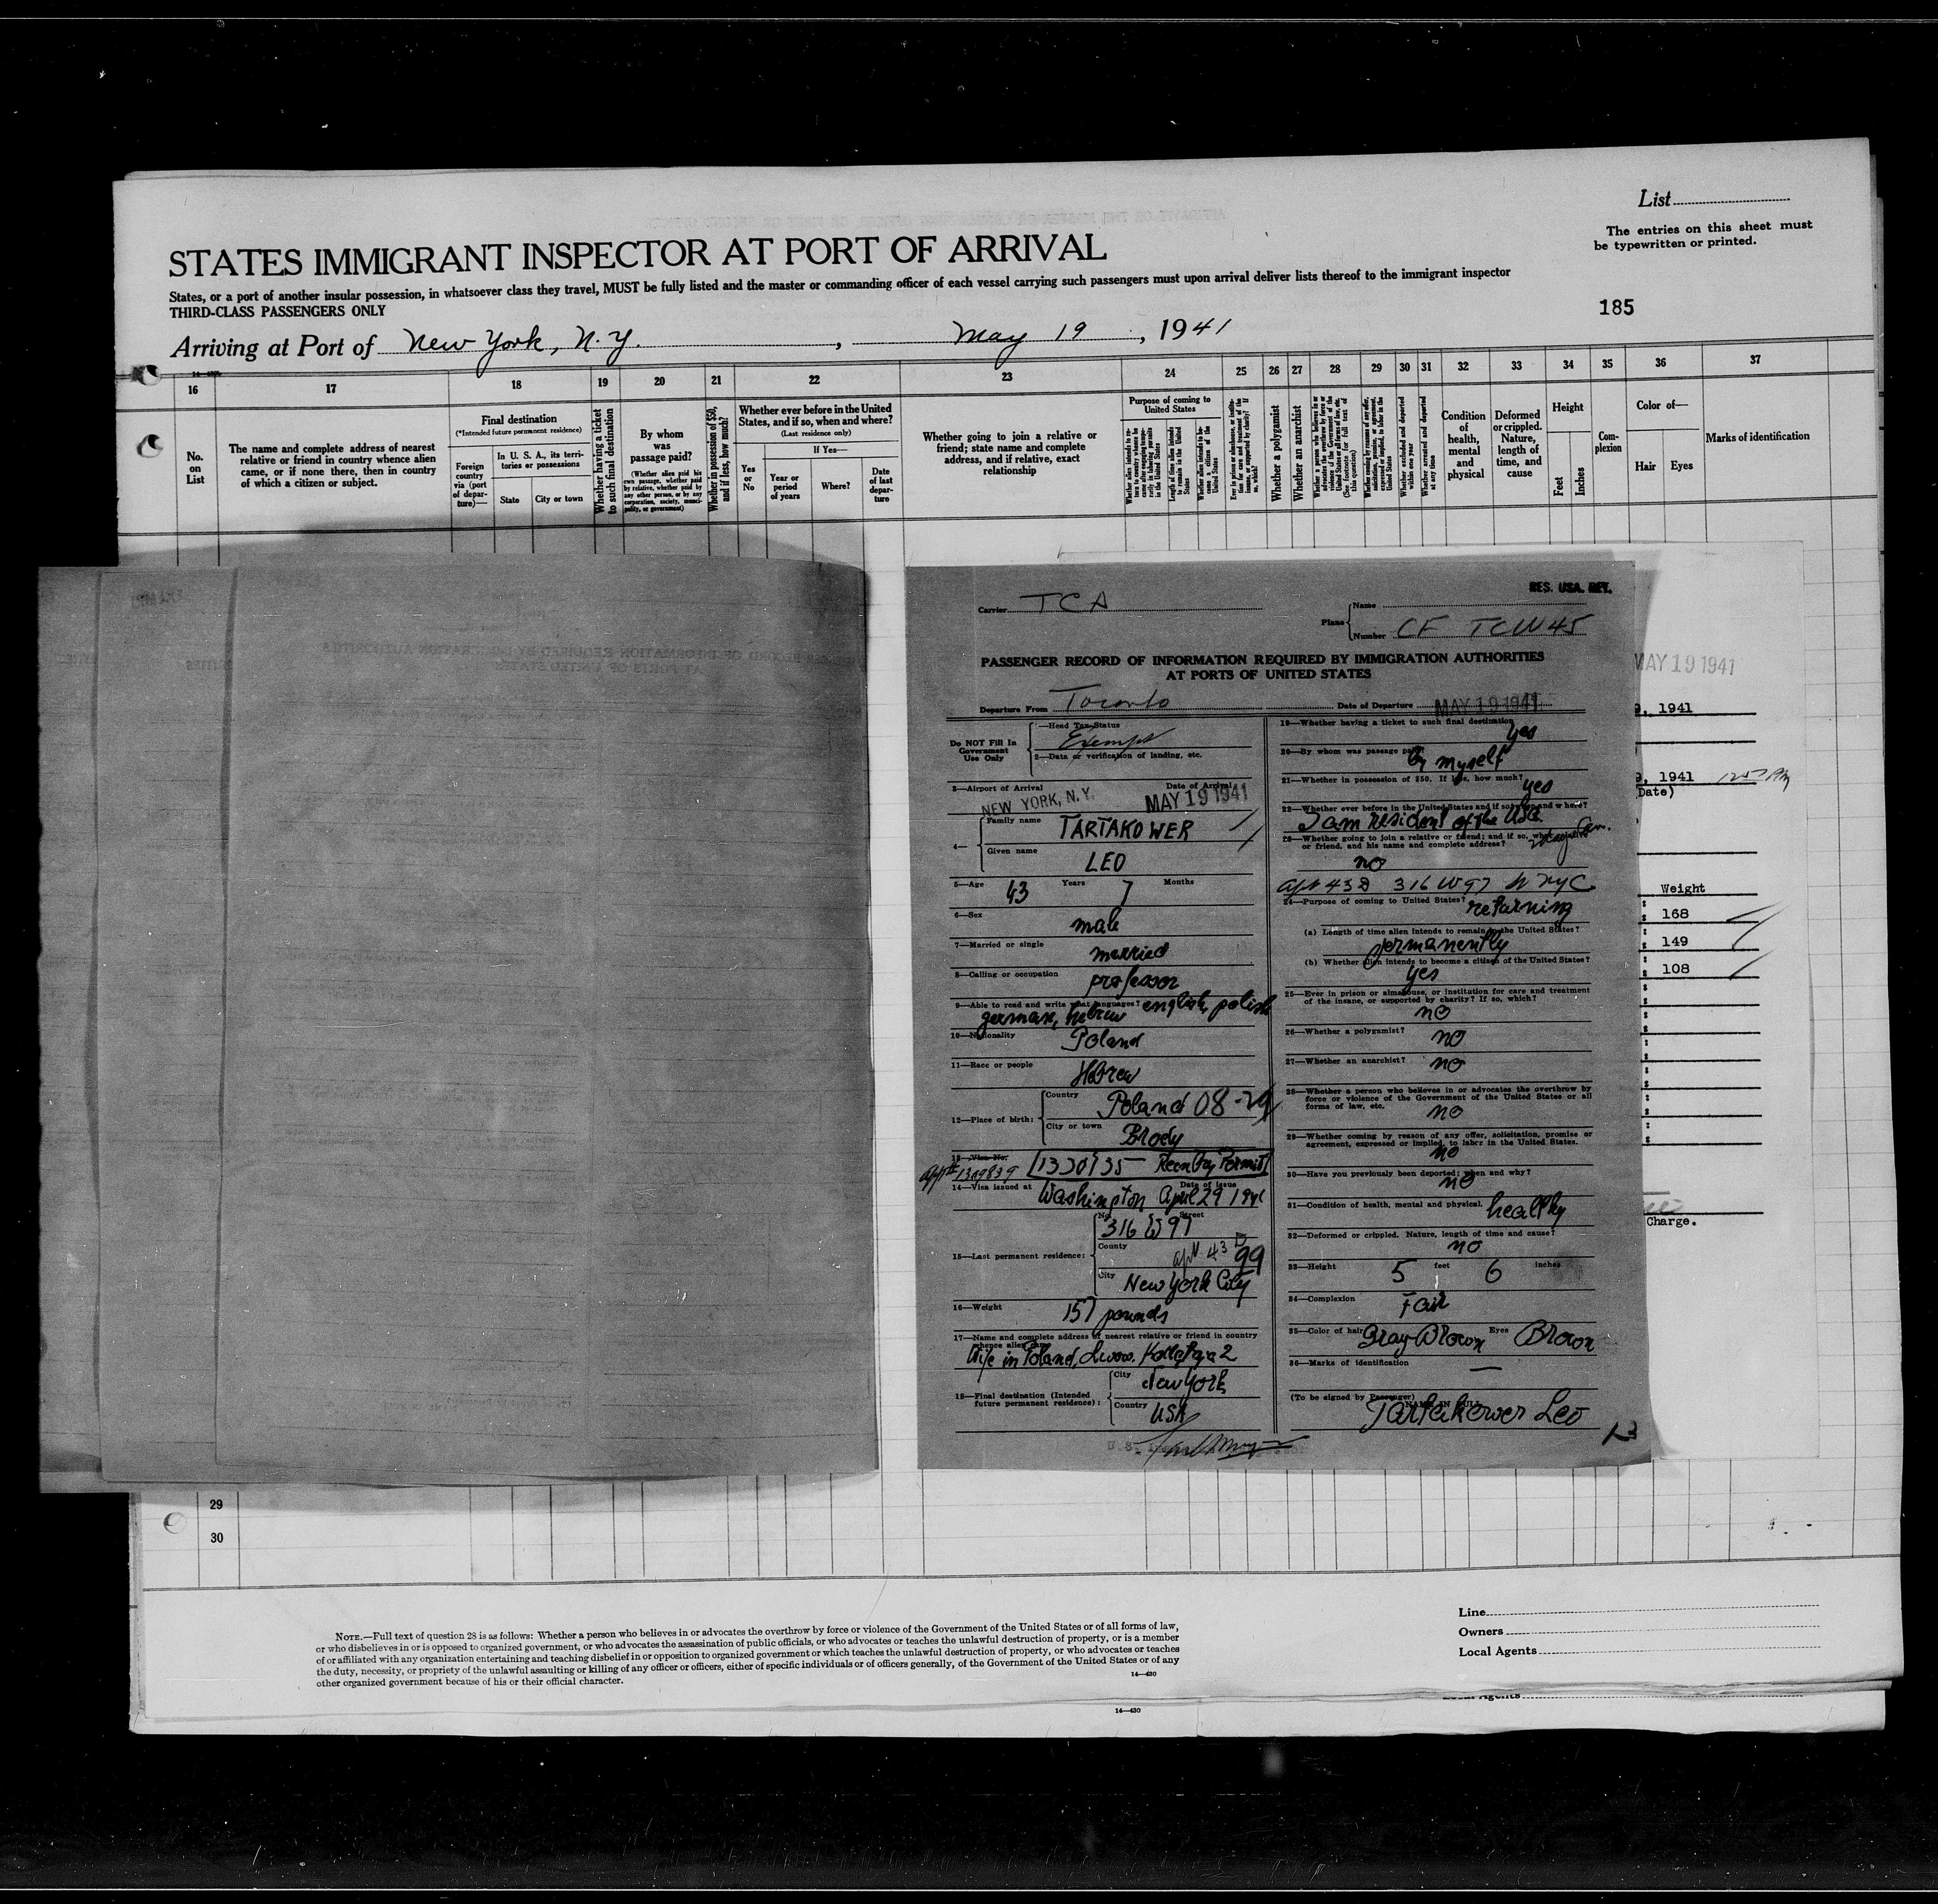 List
The entries on this sheet must
be typewritten or printed.
STATES IMMIGRANT INSPECTOR AT PORT OF ARRIVAL
States, or a port of another insular possession, in whatsoever class they travel, MUST be fully listed and the master or commanding officer of each vessel carrying such passengers must upon arrival deliver lists thereof to the immigrant inspector
THIRD-CLASS PASSENGERS ONLY
185
Arriving at Port of New York, N.Y., May 19, 1941
16 17 18 19 20 21 22 23 24 25 26 27 28 29 30 31 32 33 34 35 36 37
No. on List
The name and complete address of nearest
relative or friend in country whence alien
came, or if none there, then in country
of which a citizen or subject.
Final destination
(*Intended future permanent residence)
Foreign
country
via (port
of depar-
ture)—
In U. S. A., its terri-
tories or possessions
State
City or town
Whether having a ticket
to such final destination
By whom
was
passage paid?
(Whether alien paid his
own passage, whether paid
by relative, whether paid by
any other person, or by any
corporation, society, munici-
pality, or government)
Whether in possession of $50,
and if less, how much?
Whether ever before in the United
States, and if so, when and where?
(Last residence only)
Yes
or
No
If Yes—
Year or
period
of years
Where?
Date
of last
depar-
ture
Whether going to join a relative or
friend; state name and complete
address, and if relative, exact
relationship
Purpose of coming to
United States
Whether a polygamist
Whether an anarchist
Condition
of
health,
mental
and
physical
Deformed
or crippled.
Nature,
length of
time, and
cause
Height
Feet
Inches
Com-
plexion
Color of—
Hair
Eyes
Marks of identification
RES. USA. RET.
Carrier TCA
Plane Name
Number CF TCW 45
PASSENGER RECORD OF INFORMATION REQUIRED BY IMMIGRATION AUTHORITIES
AT PORTS OF UNITED STATES
Departure From Toronto Date of Departure MAY 19 1941
Do NOT Fill In
Government
Use Only
1—Head Tax Status
Exempt
2—Data or verification of landing, etc.
3—Airport of Arrival Date of Arrival
NEW YORK, N.Y. MAY 19 1941
4—
Family name TARTAKOWER
Given name LEO
5—Age 43 Years 7 Months
6—Sex male
7—Married or single married
8—Calling or occupation professor
9—Able to read and write what languages? english, polish
german, hebrew
10—Nationality Poland
11—Race or people Hebrew
12—Place of birth:
Country Poland
City or town Brody
13—Visa No. Reentry Permit
14—Visa issued at Washington Date of issue April 29 1941
15—Last permanent residence:
No. Street 316 W 97
County apt 43 D 99
City New York City
16—Weight 157 pounds
17—Name and complete address of nearest relative or friend in country
whence alien came
Wife in Poland, Lwow.
18—Final destination (Intended
future permanent residence):
City New York
Country USA
19—Whether having a ticket to such final destination
yes
20—By whom was passage paid?
by myself
21—Whether in possession of $50. If less, how much? yes
22—Whether ever before in the United States and if so, when and where?
I am resident of the USA
23—Whether going to join a relative or friend; and if so, what relative
or friend, and his name and complete address?
no
apt 43 D 316 W 97 NYC
24—Purpose of coming to United States? returning
(a) Length of time alien intends to remain in the United States?
permanently
(b) Whether alien intends to become a citizen of the United States?
yes
25—Ever in prison or almshouse, or institution for care and treatment
of the insane, or supported by charity? If so, which?
no
26—Whether a polygamist? no
27—Whether an anarchist? no
28—Whether a person who believes in or advocates the overthrow by
force or violence of the Government of the United States or all
forms of law, etc.
no
29—Whether coming by reason of any offer, solicitation, promise or
agreement, expressed or implied, to labor in the United States.
no
30—Have you previously been deported; when and why?
no
31—Condition of health, mental and physical. healthy
32—Deformed or crippled. Nature, length of time and cause?
no
33—Height 5 feet 6 inches
34—Complexion Fair
35—Color of hair Gray Brown Eyes Brown
36—Marks of identification —
(To be signed by Passenger)
Tartakower Leo
13
MAY 19 1941
, 1941
, 1941
Date)
Weight
: 168
: 149
: 108
Charge.
29
30
NOTE.—Full text of question 28 is as follows: Whether a person who believes in or advocates the overthrow by force or violence of the Government of the United States or of all forms of law,
or who disbelieves in or is opposed to organized government, or who advocates the assassination of public officials, or who advocates or teaches the unlawful destruction of property, or is a member
of or affiliated with any organization entertaining and teaching disbelief in or opposition to organized government or which teaches the unlawful destruction of property, or who advocates or teaches
the duty, necessity, or propriety of the unlawful assaulting or killing of any officer or officers, either of specific individuals or of officers generally, of the Government of the United States or of any
other organized government because of his or their official character.
14—430
Line
Owners
Local Agents
14—430